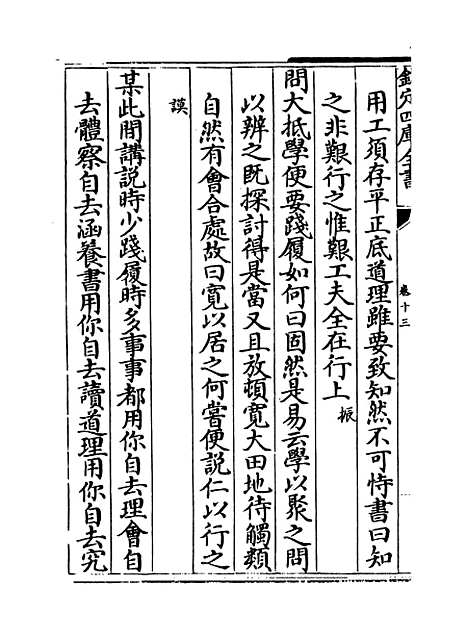 欽定四庫全書
卷十三
用工須存平正底道理雖要致知然不可恃書曰知
之非艱行之惟艱工夫全在行上振
問大抵學便要踐履如何曰固然是易云學以聚之問
以辨之既探討得是當又且放頓寛大田地待觸類
自然有會合處故曰寛以居之何嘗便說仁以行之
謨
某此間講說時少踐履時多事事都用你自去理會自
去體察自去涵養書用你自去讀道理用你自去究